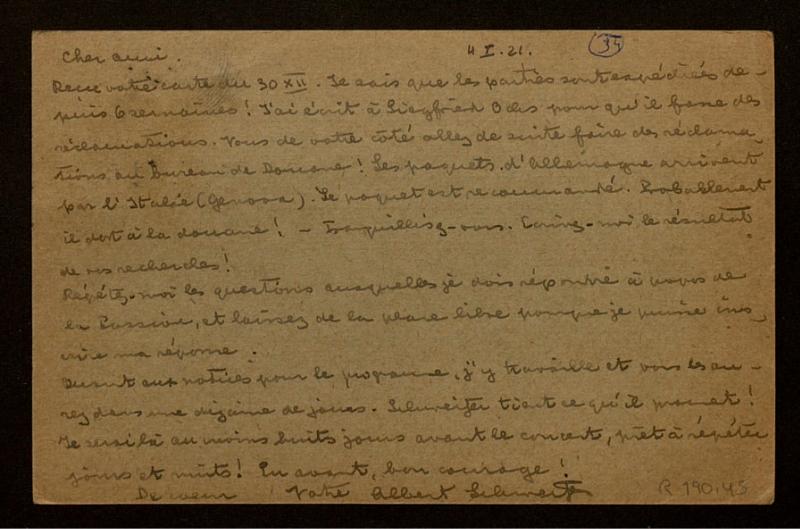 Cher ami. 4 I. 21. 34
Reçu votre carte du 30 XII. Je sais que les parties sont expédiées de-
puis 6 semaines! J'ai écrit à Siegfried Ochs pour qu'il fasse des
réclamations. Vous de votre côté allez de suite faire des réclama-
tions au bureau de Douane! Les paquets d'Allemagne arrivent
par l'Italie (Genova). Le paquet est recommandé. Probablement
il dort à la douane! - Tranquillisez-vous. Ecrivez-moi le résultat
de vos recherches!
Répétez-moi les questions auxquelles je dois répondre à propos de
la Passion, et laissez de la place libre pour que je puisse ins
crire ma réponse.
Quant aux notices pour le programe, j'y travaille et vous les au-
rez dans une dizaine de jours. Schweitzer tient ce qu'il promet!
Je serai là au moins huits jours avant le concert, prêt à répéter
jours et nuits! En avant, bon courage!
De coeur Votre Albert Schweitzer
R 190.45